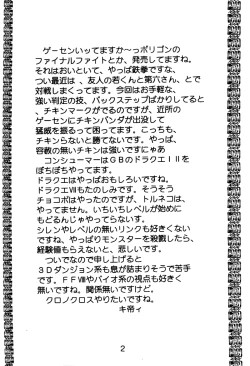 ゲーセンいってますか～っポリゴンの
ファイナルファイトとか、発売してますね。
それはおいといて、やっぱ鉄拳ですな、
つい最近は 、友人の若くんと第六さん、とで
対戦しまくってます。今回はお手軽な、
強い判定の技、バックステップばかりしてると
、チキンマークがでるのですが、近所の
ゲーセンにチキンパンダが出没して
猛威を振るって困ってます。こっちも、
チキンらないと勝てないです。やっぱ、
容赦の無いチキンは強いですにゃあ
コンシューマーはＧＢのドラクエＩＩを
ぼちぼちやってます。
ドラクエはやっぱおもしろいですね。
ドラクエⅦもたのしみです。そうそう
チョコボはやったのですが、トルネコは、
やってません。いちいちレベルが始めに
もどるんじゃやってらないす。
シレンやレベルの無いリンクも好きくない
ですね、やっぱりモンスターを殺戮したら、
経験値もらえないと、悲しいです。
ついでなので申し上げると
３Ｄダンジョン系も息が詰まりそうで苦手
です。ＦＦⅧやバイオ系の視点も好きく
無いですね。関係無いですけど。
クロノクロスやりたいですね。
キ帝ィ
2